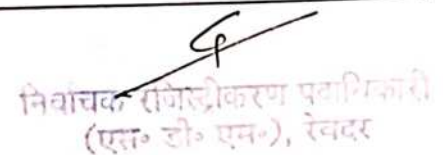 निर्वाचक रजिस्ट्रीकरण पदाधिकारी
(एस० डी० एम०), रेवदर